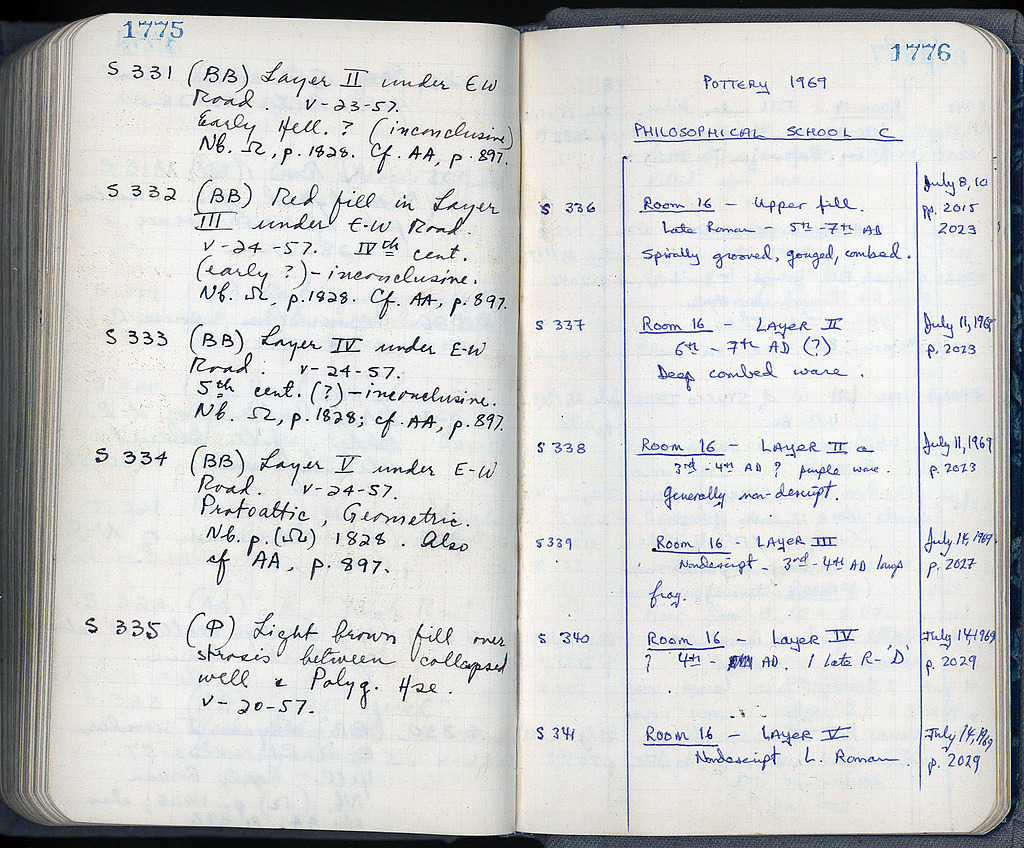 1775
S 331 (BB) Layer II under E-W
Road v-23-57.
Early Hell. ? (inconclusive)
Nb. Ω, p. 1828. Cf. AA, p. 897.
S 332 (BB) Red fill in Layer
III under E-W Road.
v-24-57. IVth cent.
(early ?) - inconclusive.
Nb. Ω, p. 1828. Cf. AA, p. 897.
S 333 (BB) Layer IV under E-W
Road. v-24-57.
5th cent. (?) - inconclusive.
Nb. Ω, p. 1828; cf. AA, p. 897.
S 334 (BB) Layer V under E-W
Road. v-24-57.
Protoattic, Geometric.
Nb. p. (Ω) 1828. Also
cf AA, p. 897.
S 335 (Φ) Light brown fill over
strosis between collapsed
well & Polyg. Hse.
v-20-57.
1776
POTTERY 1969
PHILOSOPHICAL SCHOOL C
July 8, 10
S 336 Room 16 - Upper fill. pp. 2015
Late Roman - 5th-7th AD 2023
Spirally grooved, gouged, combed.
S 337 Room 16 - LAYER II July 11, 1969
6th - 7th AD (?) p. 2023
Deep combed ware.
S 338 Room 16 - LAYER II a July 11, 1969
3rd-4th AD ? purple ware. p. 2023
generally non-descript.
S 339 Room 16 - LAYER III July 14, 1969
Nondescript - 3rd-4th AD lamp p. 2027
frag.
S 340 Room 16 - LAYER IV July 14, 1969
? 4th - AD. 1 late R-'D' p. 2029
S 341 Room 16 - LAYER V July 14, 1969
Nondescript L. Roman p. 2029